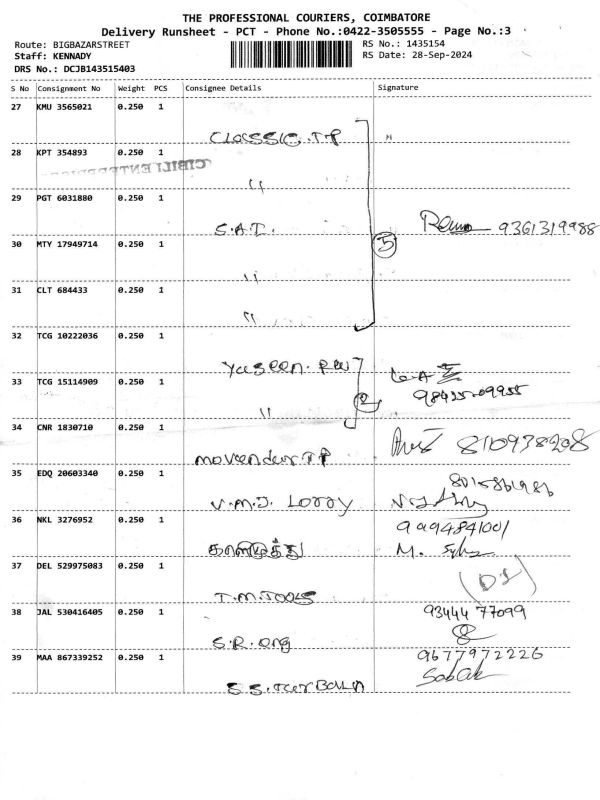 THE PROFESSIONAL COURIERS, COIMBATORE
Delivery Runsheet - PCT - Phone No.:0422-3505555 - Page No.:3
Route: BIGBAZARSTREET
RS No.: 1435154
Staff: KENNADY
RS Date: 28-Sep-2024
DRS No.: DCJB143515403
S No Consignment No Weight PCS Consignee Details Signature
27 KMU 3565021 0.250 1
CLASSIC.TP "
28 KPT 354893 0.250 1
"
29 PGT 6031880 0.250 1
S.A.T. 9361319988
30 MTY 17949714 0.250 1
5
"
31 CLT 684433 0.250 1
"
32 TCG 10222036 0.250 1
Yaseen.
33 TCG 15114909 0.250 1
98435-09955
" 2
34 CNR 1830710 0.250 1
Moveendur TP 8109378208
35 EDQ 20603340 0.250 1
V.M.J. Lorry
36 NKL 3276952 0.250 1
9994841001
காளிமுத்து M.
37 DEL 529975083 0.250 1
(D1)
T.M.TOOLS
38 JAL 530416405 0.250 1 93444 77099
S.R. org
39 MAA 867339252 0.250 1 9677972226
S.S. Turban